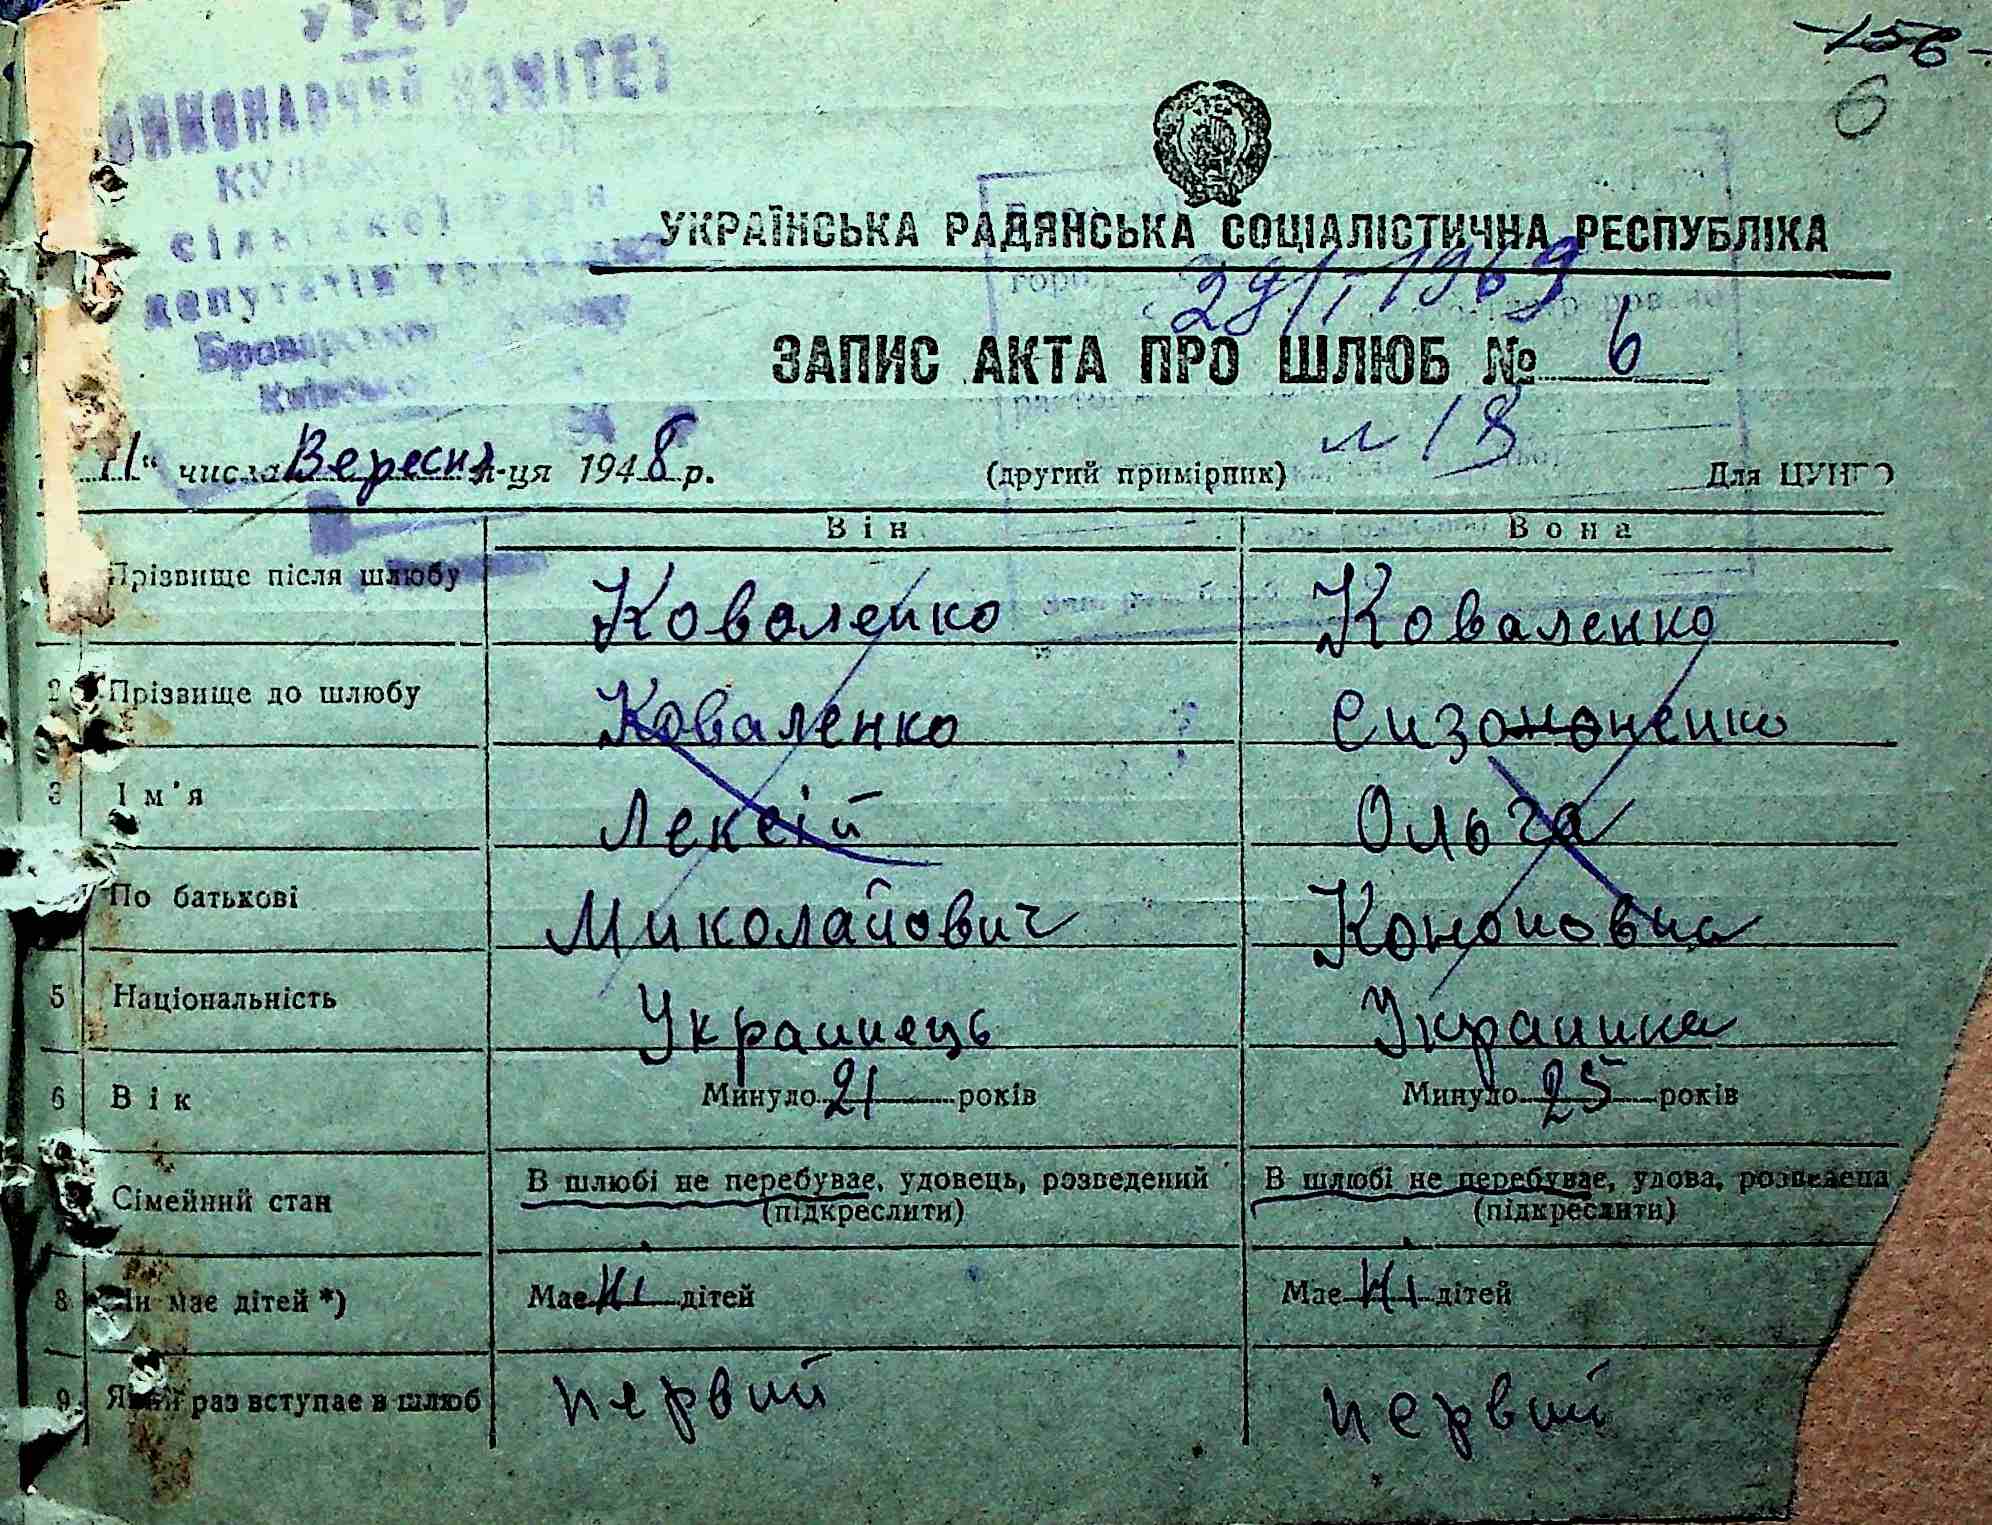 -156-
6
УРСР
КОМІТЕТ
сільської Ради
депутатів
УКРАЇНСЬКА РАДЯНСЬКА СОЦІАЛІСТИЧНА РЕСПУБЛІКА
29/I-1969
ЗАПИС АКТА ПРО ШЛЮБ № 6
№ 18
11" числа Вересня м-ця 1948 р. (другий примірник) Для ЦУНГО
Він Вона
Прізвище після шлюбу Коваленко Коваленко
2 Прізвище до шлюбу Коваленко Сизононенко
3 Ім'я Лексій Ольга
По батькові Миколайович Кононовна
5 Національність Украинець Украинка
6 Вік Минуло 21 років Минуло 25 років
Сімейний стан В шлюбі не перебуває, удовець, розведений В шлюбі не перебуває, удова, розведена
(підкреслити) (підкреслити)
8 Чи має дітей *) Має Ні дітей Має Ні дітей
9. Який раз вступає в шлюб первий первий